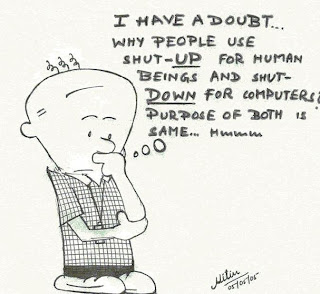 I HAVE A DOUBT...
WHY PEOPLE USE
SHUT-UP FOR HUMAN
BEINGS AND SHUT-
DOWN FOR COMPUTERS?
PURPOSE OF BOTH IS
SAME... Hmmmm
Nitin
05/05/05